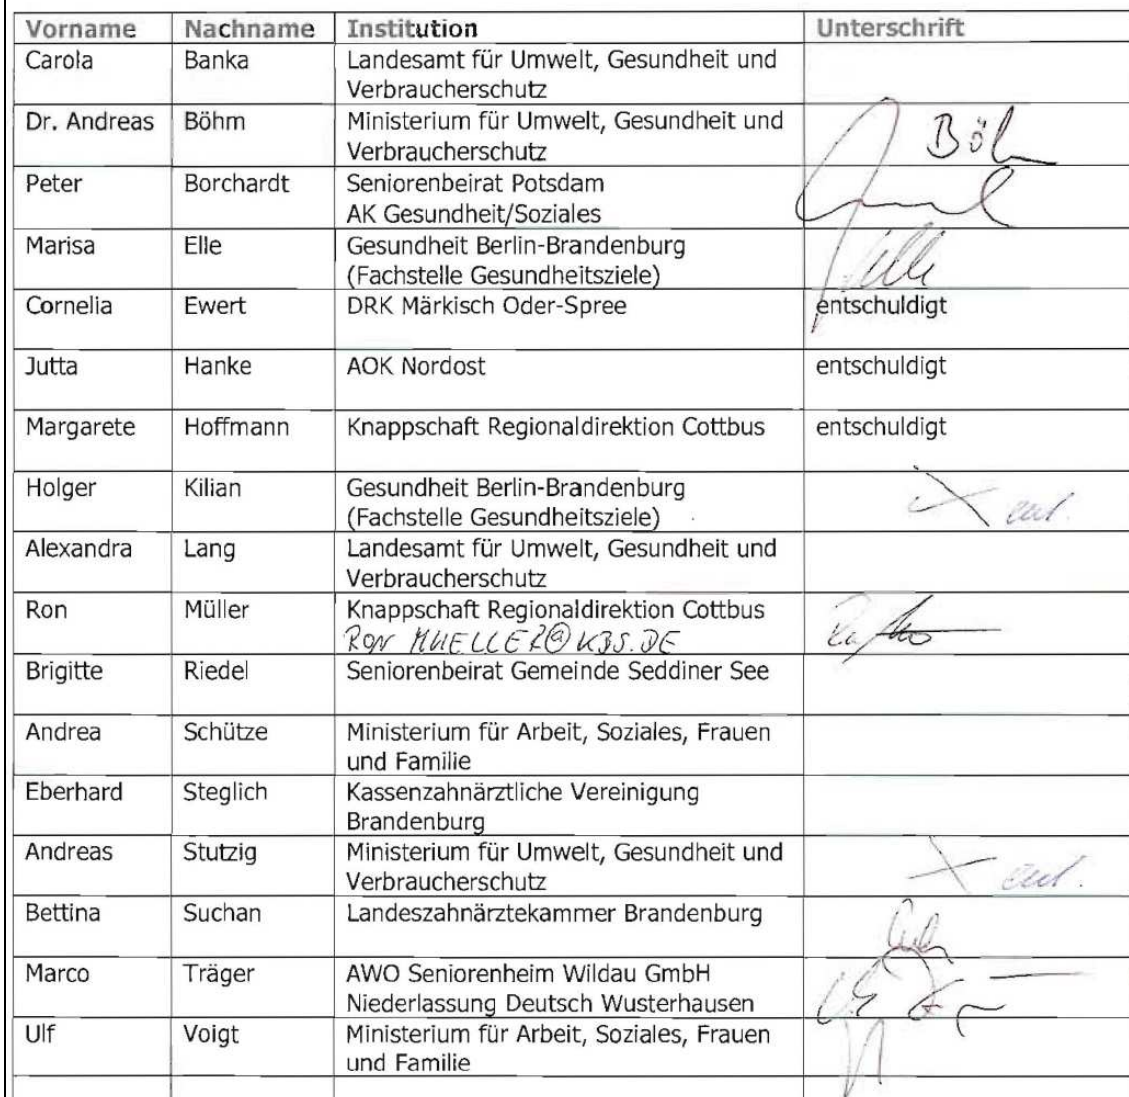 Vorname Nachname Institution Unterschrift
Carola Banka Landesamt für Umwelt, Gesundheit und
Verbraucherschutz
Dr. Andreas Böhm Ministerium für Umwelt, Gesundheit und
Verbraucherschutz
Peter Borchardt Seniorenbeirat Potsdam
AK Gesundheit/Soziales
Marisa Elle Gesundheit Berlin-Brandenburg
(Fachstelle Gesundheitsziele)
Cornelia Ewert DRK Märkisch Oder-Spree entschuldigt
Jutta Hanke AOK Nordost entschuldigt
Margarete Hoffmann Knappschaft Regionaldirektion Cottbus entschuldigt
Holger Kilian Gesundheit Berlin-Brandenburg
(Fachstelle Gesundheitsziele)
Alexandra Lang Landesamt für Umwelt, Gesundheit und
Verbraucherschutz
Ron Müller Knappschaft Regionaldirektion Cottbus
RON MUELLER@KBS.DE
Brigitte Riedel Seniorenbeirat Gemeinde Seddiner See
Andrea Schütze Ministerium für Arbeit, Soziales, Frauen
und Familie
Eberhard Steglich Kassenzahnärztliche Vereinigung
Brandenburg
Andreas Stutzig Ministerium für Umwelt, Gesundheit und
Verbraucherschutz
Bettina Suchan Landeszahnärztekammer Brandenburg
Marco Träger AWO Seniorenheim Wildau GmbH
Niederlassung Deutsch Wusterhausen
Ulf Voigt Ministerium für Arbeit, Soziales, Frauen
und Familie